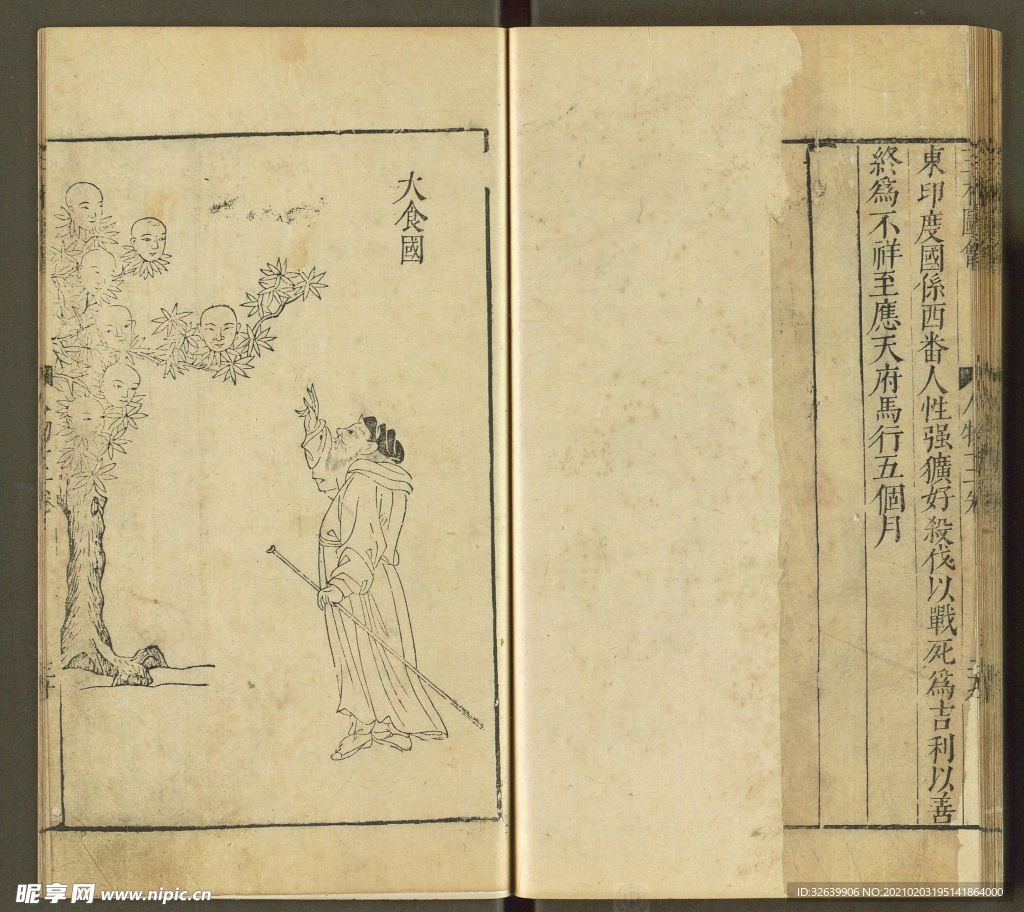 三才圖會
人物十二卷
東印度國係西番人性强獷好殺伐以戰死爲吉利以善
終爲不祥至應天府馬行五個月
大食國
昵享网 www.nipic.cn
ID:32639906 NO:20210203195141864000